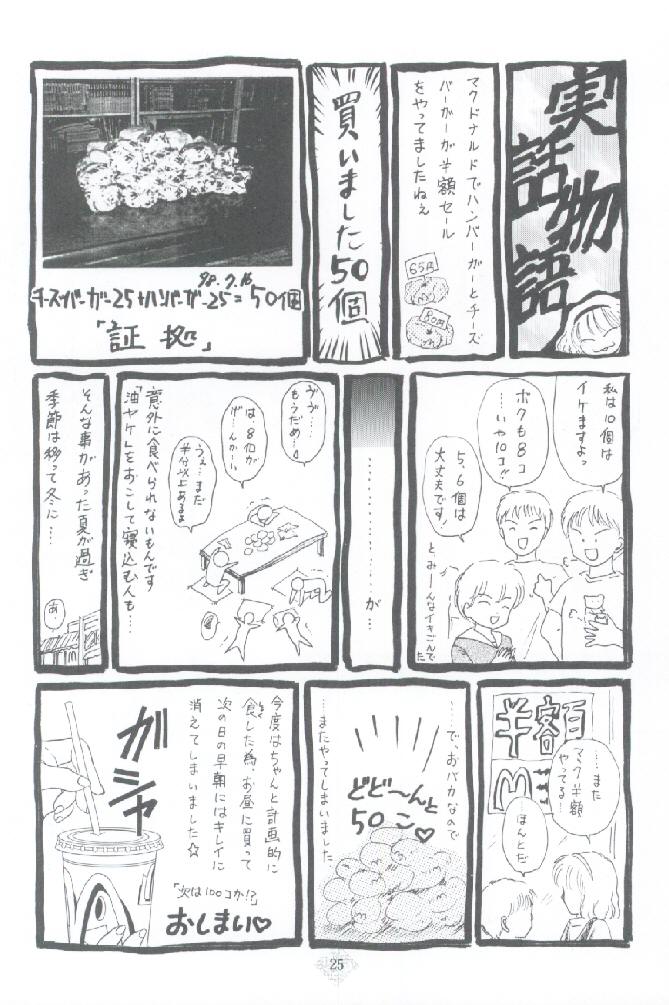 実話物語
マクドナルドでハンバーガーとチーズ
バーガーが半額セール
をやってましたねぇ
65円
80円
買いました50個
98.7.16
チーズバーガー25+ハンバーガー25=50個
「証拠」
私は10個は
イケますよっ
ボクも8コ
…いや10コ!!
5、6個は
大丈夫です!
と、みーんなイキごんでた
…………が…
ヴヴ…
もうだめ…
は8個が
げ…んか…!
うぇ…まだ
半分以上あるよ
意外に食べられないもんです
「油ヤケ」をおこして寝込む人も…
そんな事があった夏が過ぎ
季節は移って冬に…
あ
半額
M
……また
マック半額
やってる…
ほんとだ
……で、おバカなので
どど〜んと
50こ♡
…またやってしまいました
今度はちゃんと計画的に
食した為、お昼に買って
次の日の早朝にはキレイに
消えてしまいました☆
「次は100コか!?」
おしまい♡
ガシャ
25